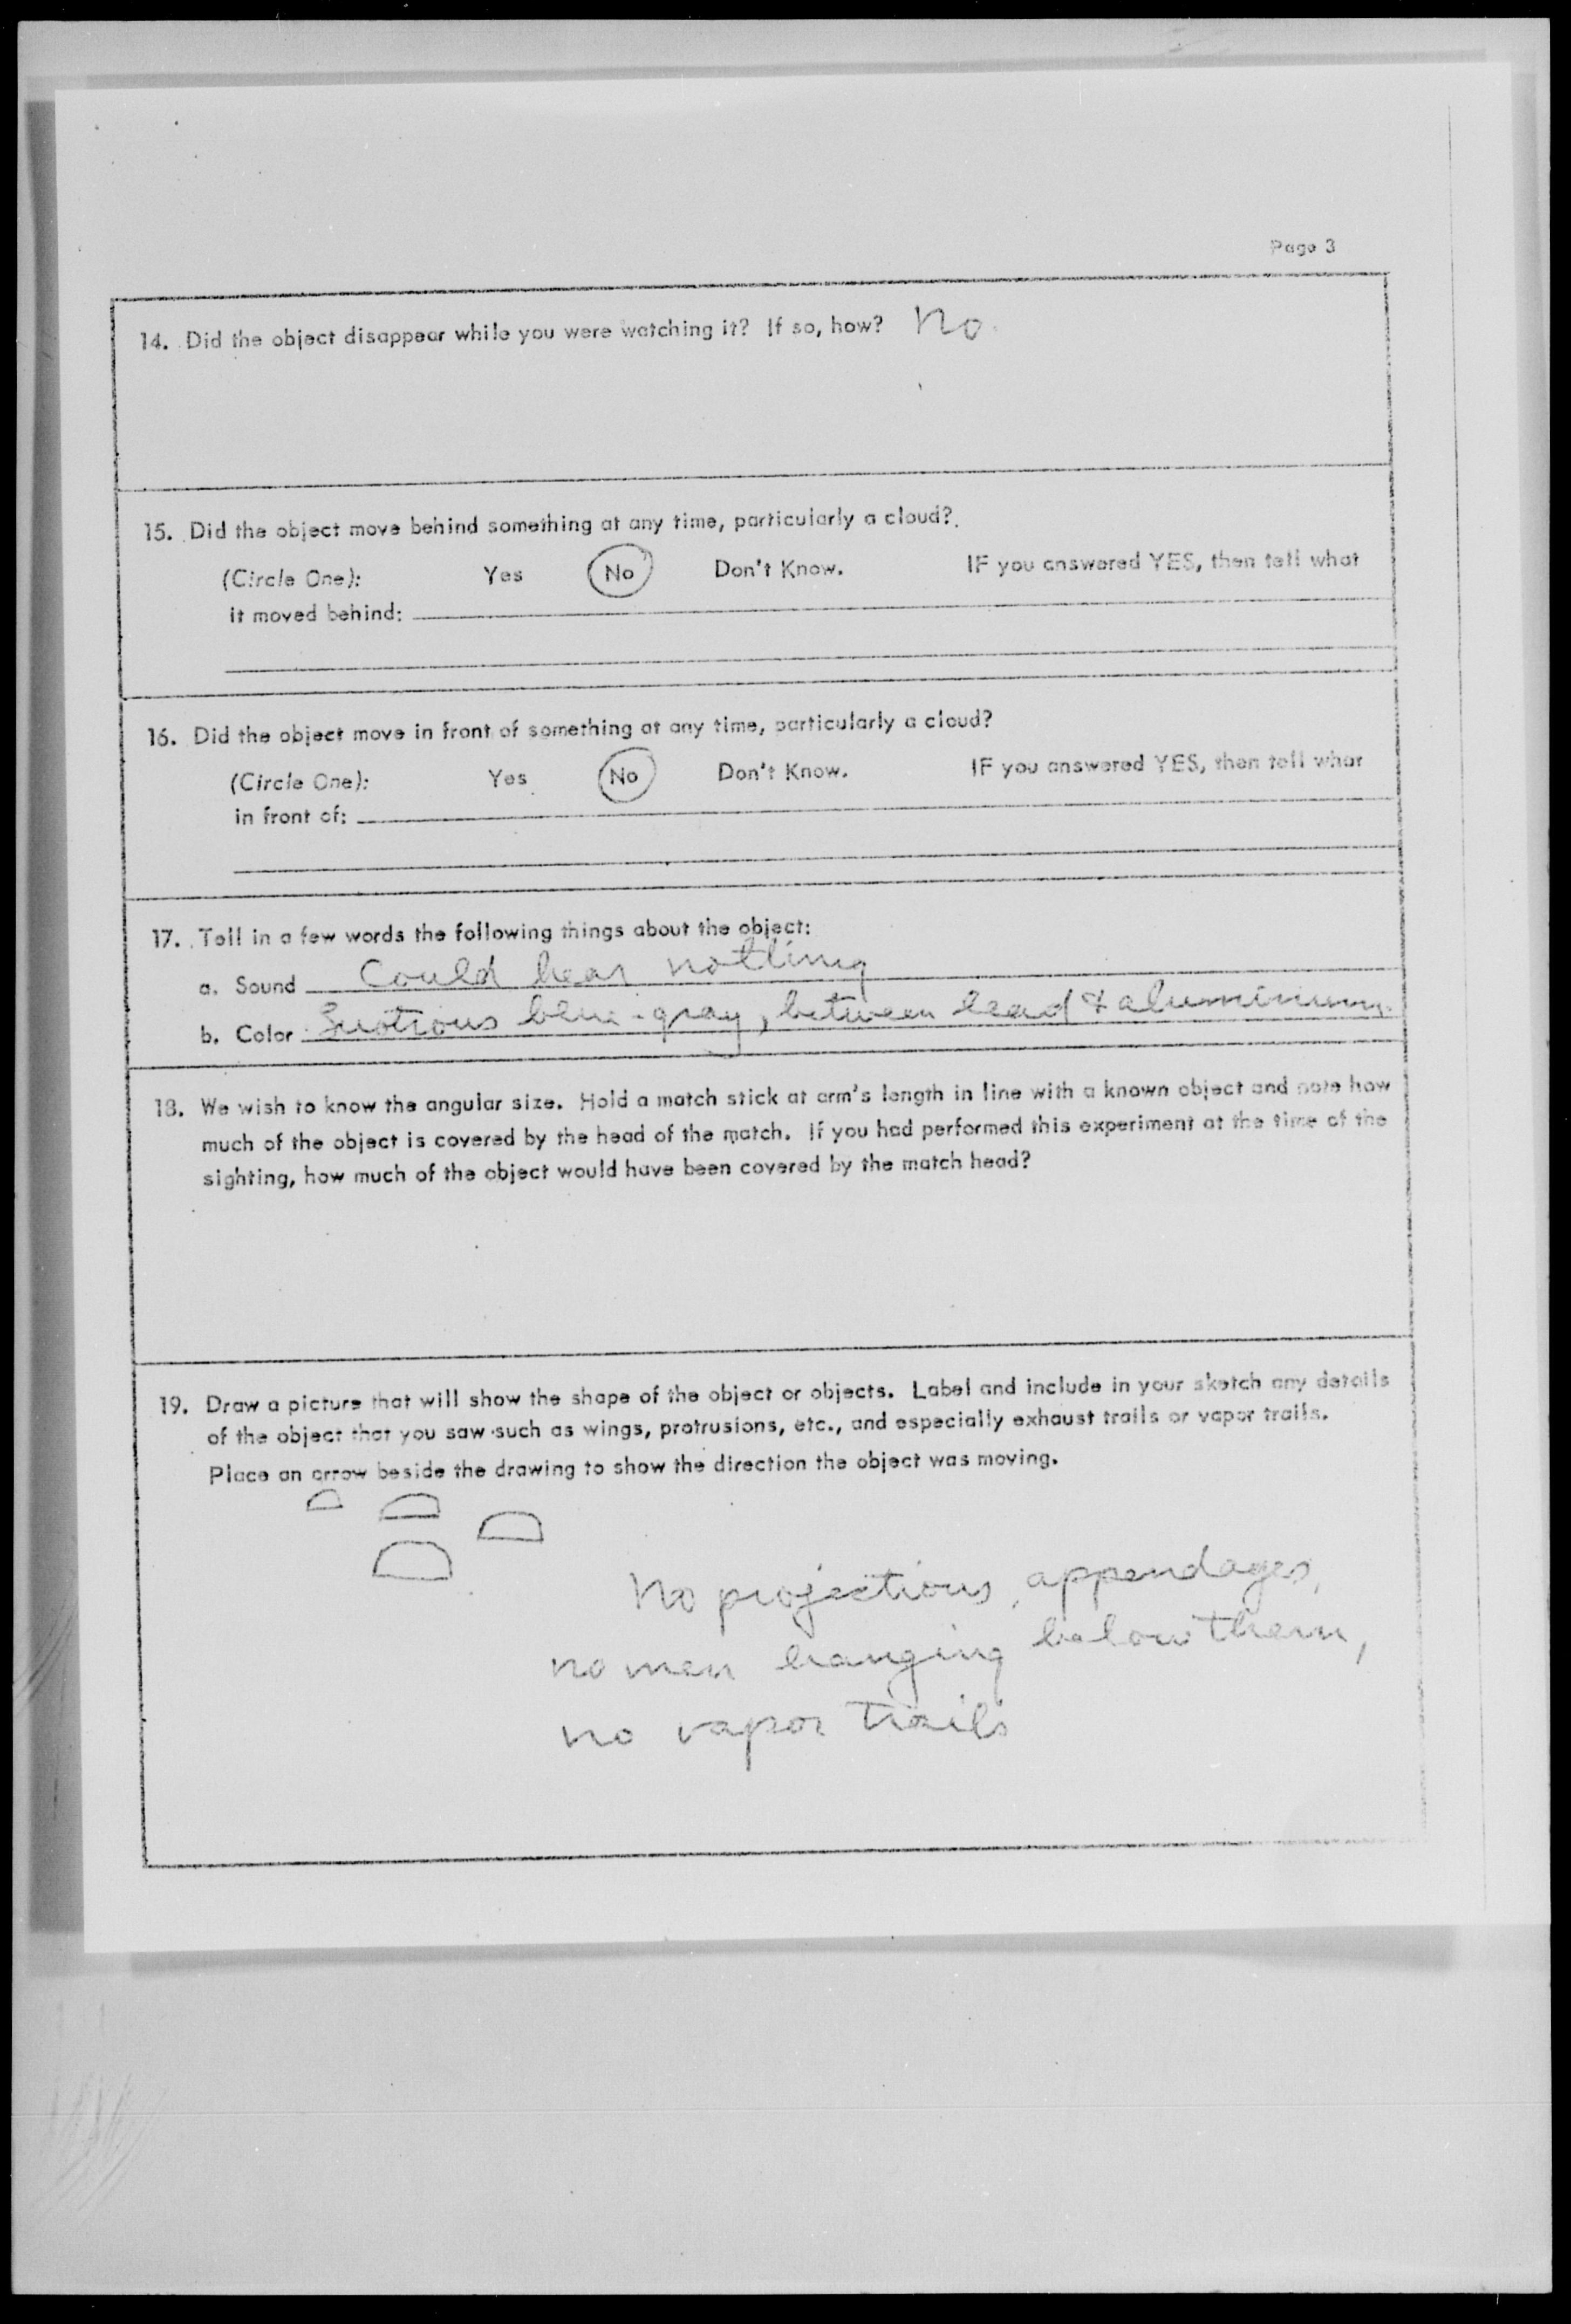 Page 3
14. Did the object disappear while you were watching it? If so, how? No
15. Did the object move behind something at any time, particularly a cloud?
(Circle One): Yes No Don't Know. IF you answered YES, then tell what
it moved behind:
16. Did the object move in front of something at any time, particularly a cloud?
(Circle One): Yes No Don't Know. IF you answered YES, then tell what
in front of:
17. Tell in a few words the following things about the object:
a. Sound Could hear nothing
b. Color blue-gray, between lead & aluminum
18. We wish to know the angular size. Hold a match stick at arm's length in line with a known object and note how
much of the object is covered by the head of the match. If you had performed this experiment at the time of the
sighting, how much of the object would have been covered by the match head?
19. Draw a picture that will show the shape of the object or objects. Label and include in your sketch any details
of the object that you saw such as wings, protrusions, etc., and especially exhaust trails or vapor trails.
Place an arrow beside the drawing to show the direction the object was moving.
No projections, appendages,
no men hanging below them,
no vapor trails